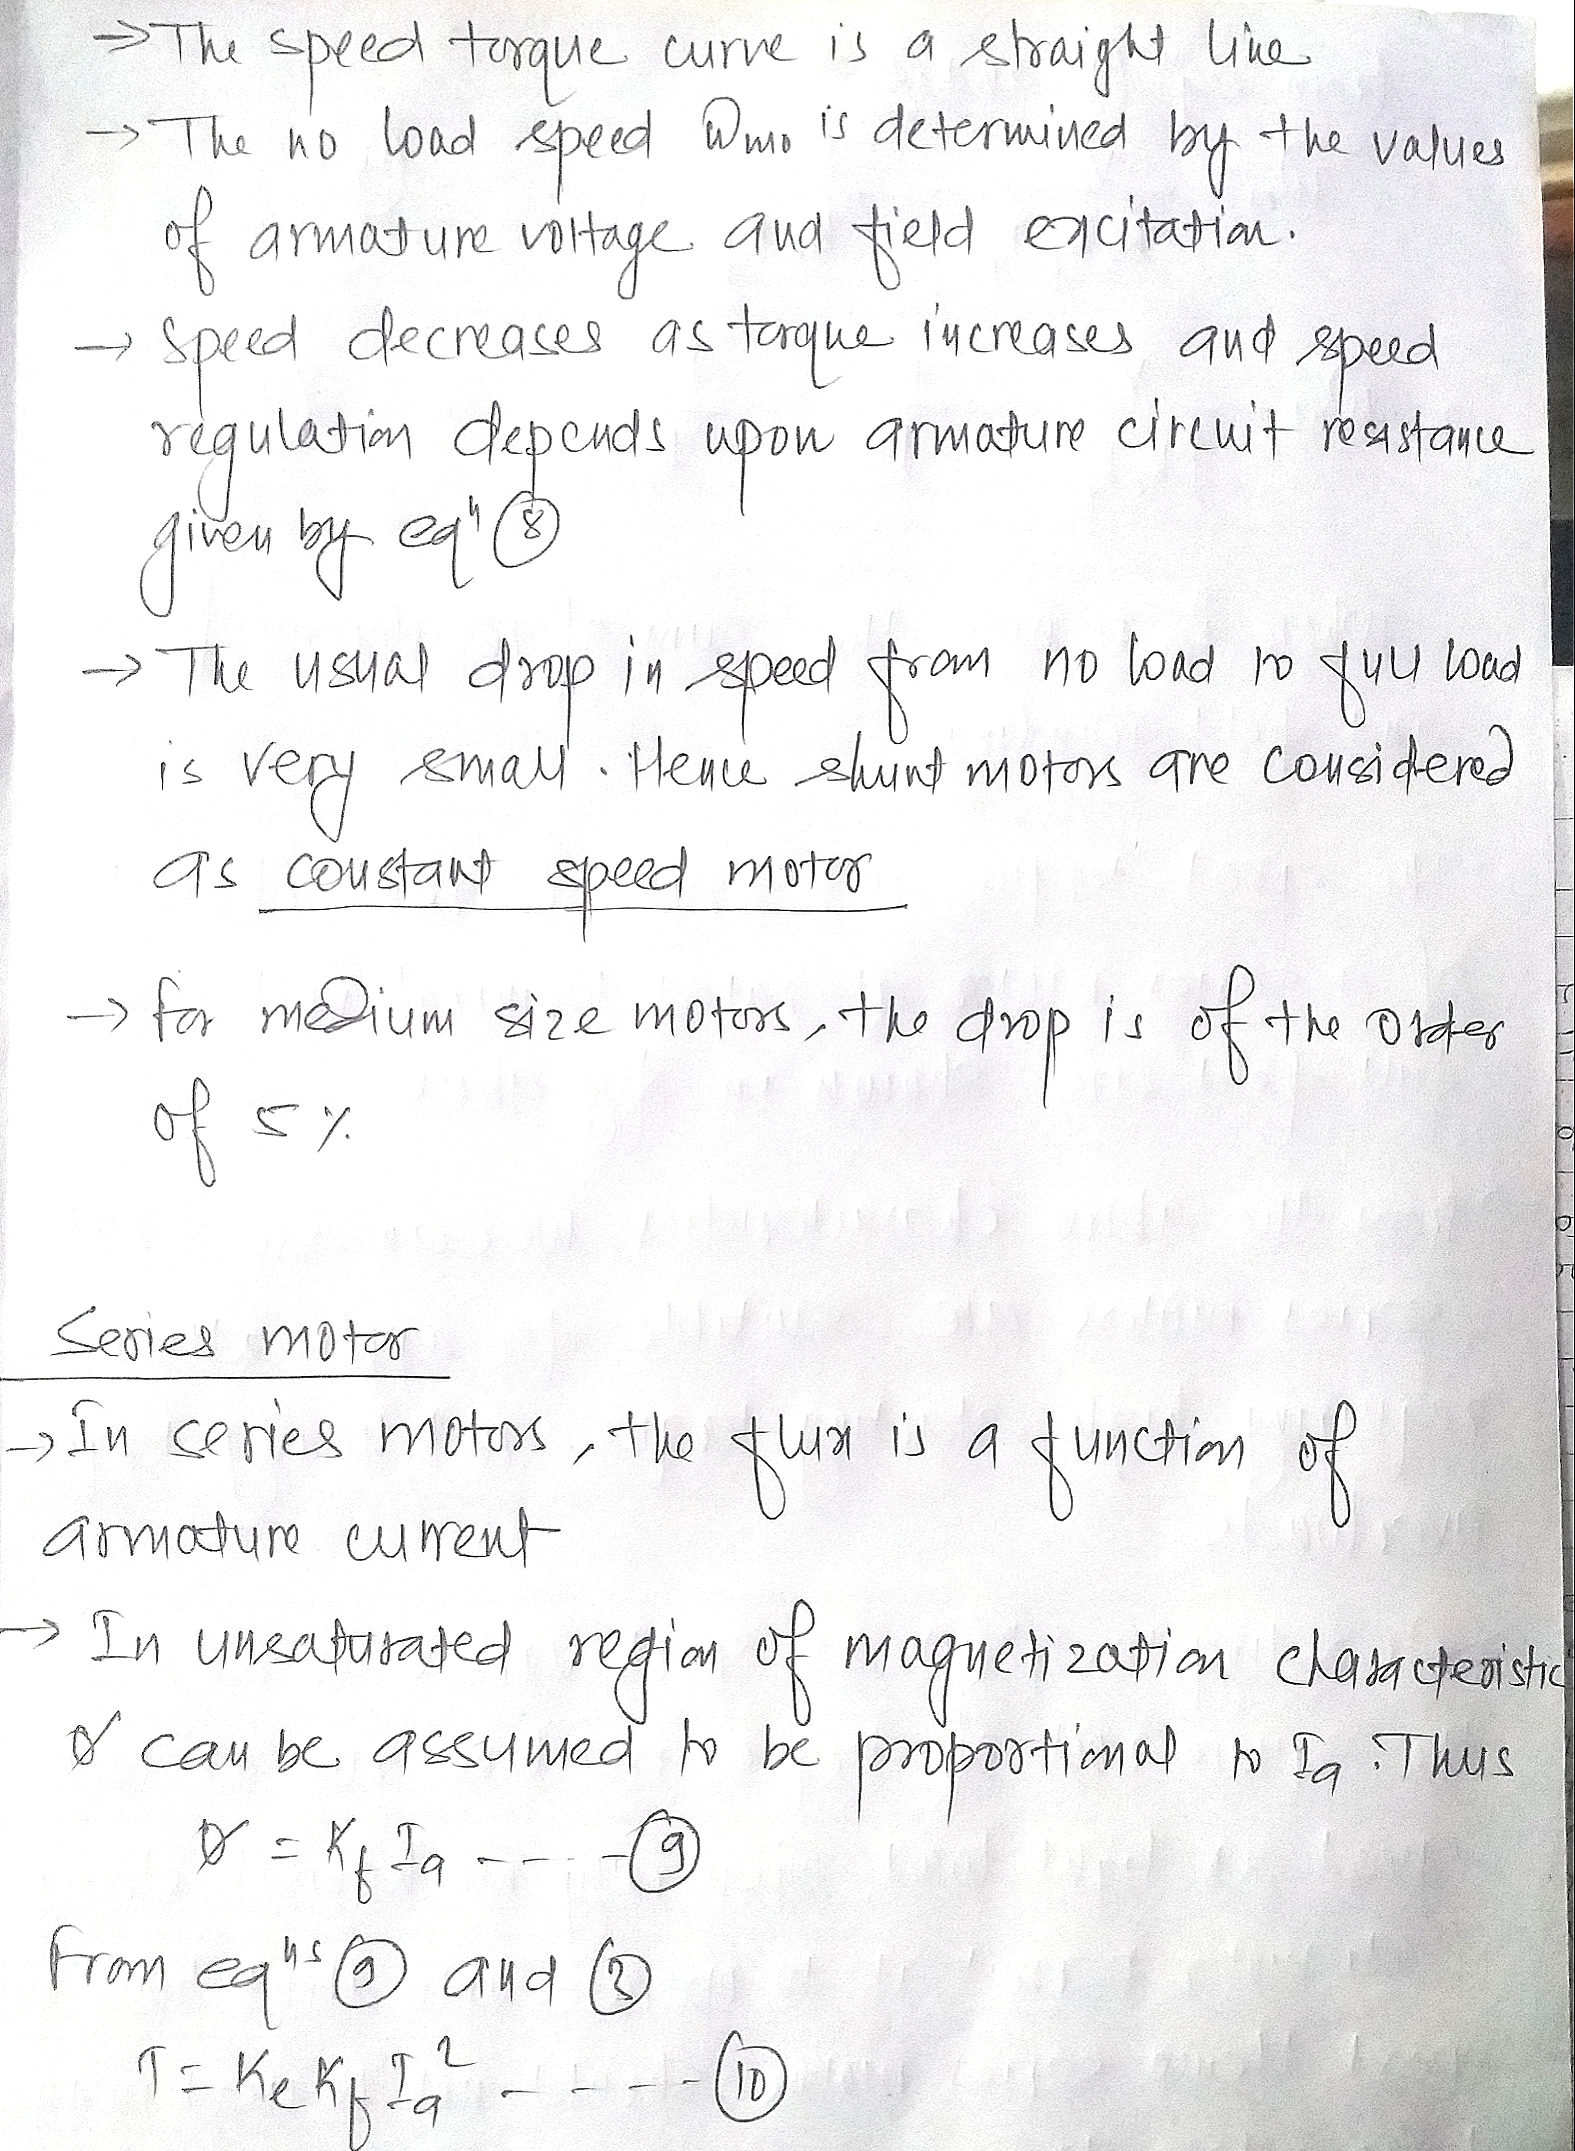 → The speed torque curve is a straight line
→ The no load speed ωmo is determined by the values
of armature voltage and field excitation.
→ Speed decreases as torque increases and speed
regulation depends upon armature circuit resistance
given by eqⁿ ⑧
→ The usual drop in speed from no load to full load
is very small. Hence shunt motors are considered
as constant speed motor
→ for medium size motors, the drop is of the order
of 5%
Series motor
→ In series motors, the flux is a function of
armature current
→ In unsaturated region of magnetization characteristic
Ø can be assumed to be proportional to Ia. Thus
Ø = Kf Ia - - - - ⑨
From eqⁿˢ ⑨ and ③
T = Ke Kf Ia² - - - - - ⑩